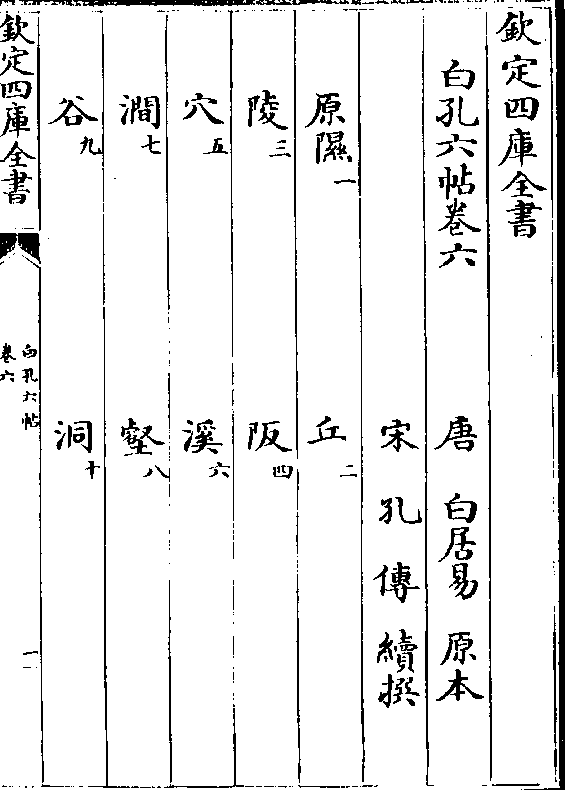 欽定四庫全書
白孔六帖卷六
唐 白居易 原本
宋 孔傳 續撰
原隰一 丘二
陵三 阪四
穴五 溪六
澗七 壑八
谷九 洞十
欽定四庫全書
白孔六帖
卷六
一